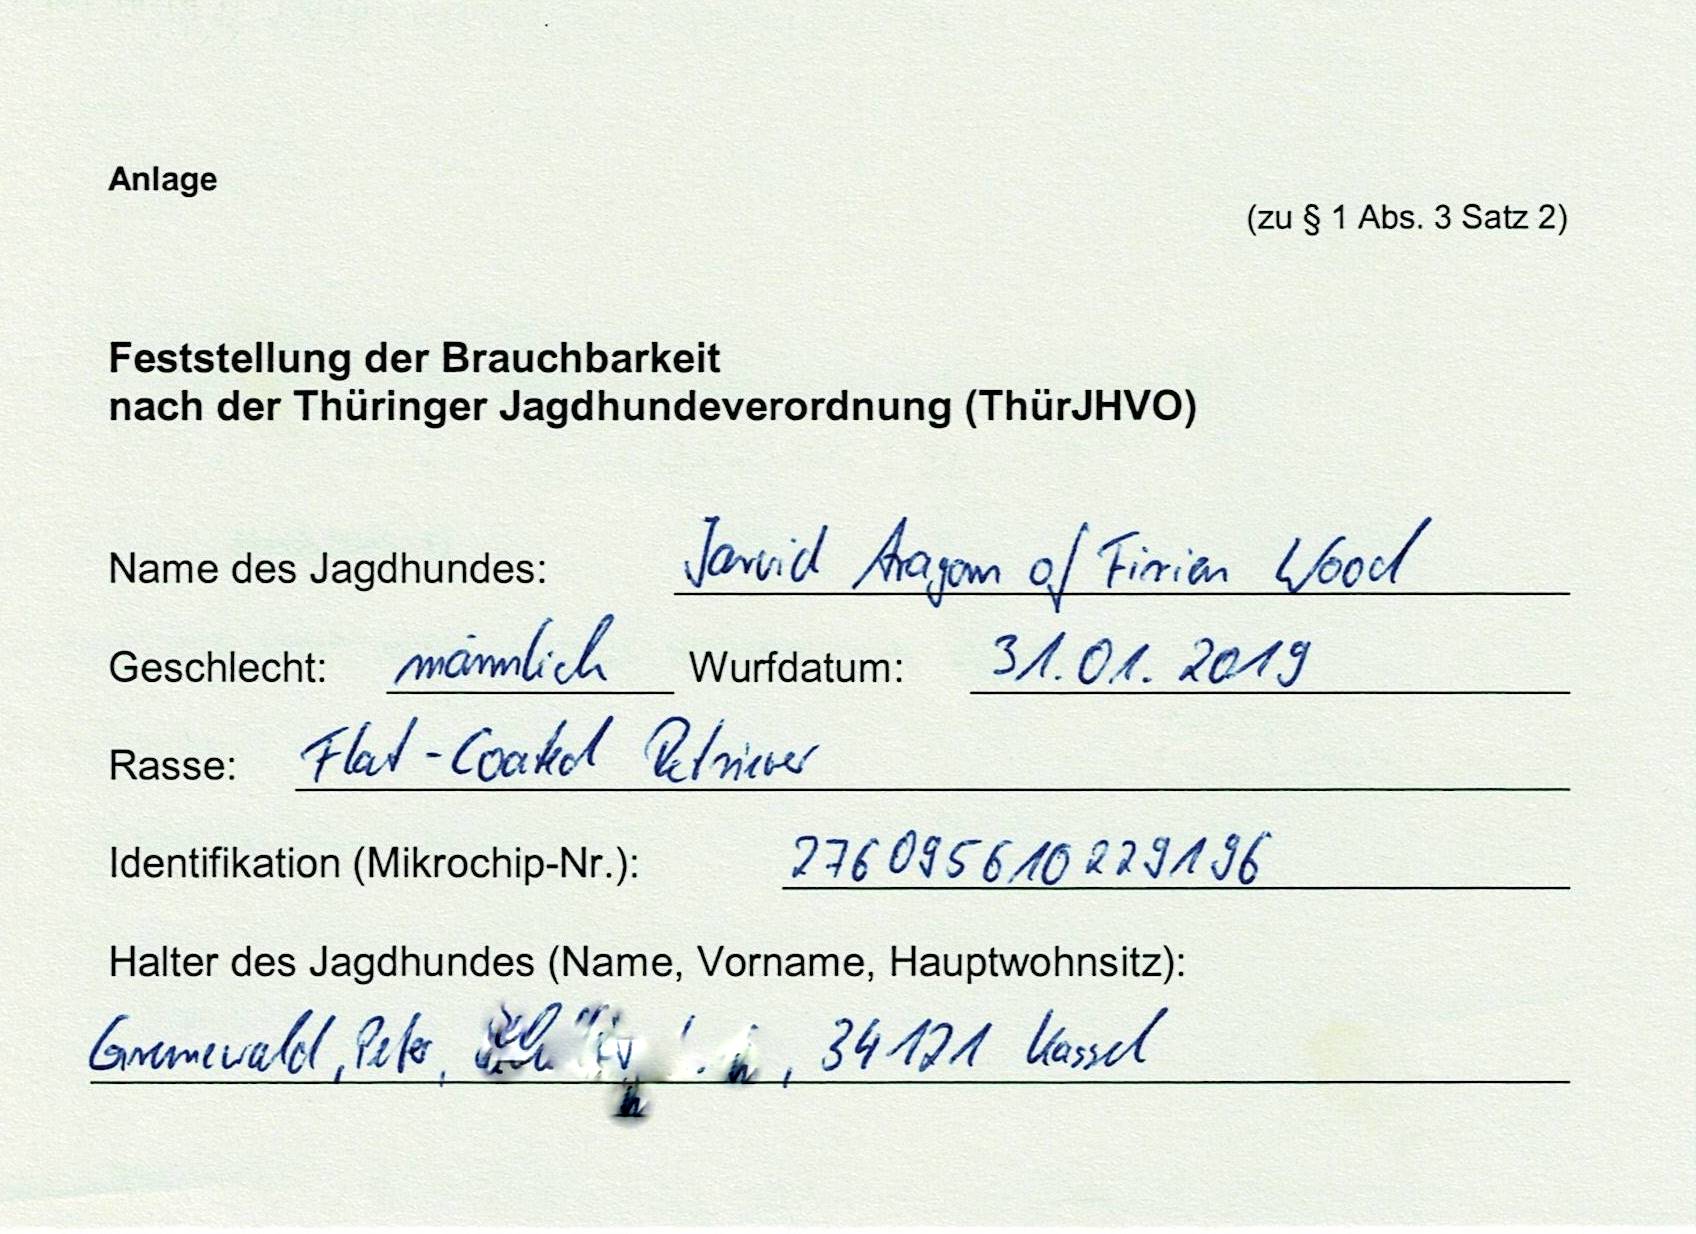 Anlage
(zu § 1 Abs. 3 Satz 2)
Feststellung der Brauchbarkeit
nach der Thüringer Jagdhundeverordnung (ThürJHVO)
Name des Jagdhundes: Jarvid Aragorn of Firien Wood
Geschlecht: männlich Wurfdatum: 31.01.2019
Rasse: Flat-Coated Retriever
Identifikation (Mikrochip-Nr.): 276095610229196
Halter des Jagdhundes (Name, Vorname, Hauptwohnsitz):
Grunewald, Peter, , 34121 Kassel